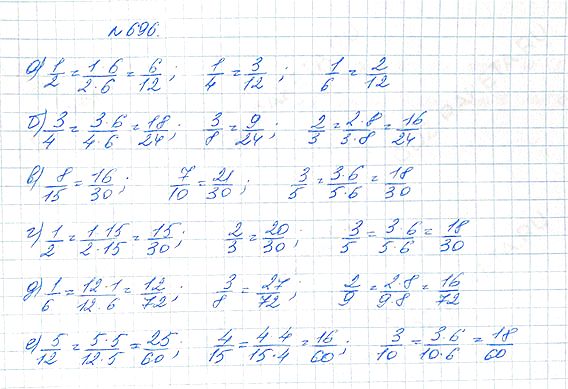 №696.
а) 1/2 = 1·6/2·6 = 6/12; 1/4 = 3/12; 1/6 = 2/12
б) 3/4 = 3·6/4·6 = 18/24; 3/8 = 9/24; 2/3 = 2·8/3·8 = 16/24
в) 8/15 = 16/30; 7/10 = 21/30; 3/5 = 3·6/5·6 = 18/30
г) 1/2 = 1·15/2·15 = 15/30; 2/3 = 20/30; 3/5 = 3·6/5·6 = 18/30
д) 1/6 = 12·1/12·6 = 12/72; 3/8 = 27/72; 2/9 = 2·8/9·8 = 16/72
е) 5/12 = 5·5/12·5 = 25/60; 4/15 = 4·4/15·4 = 16/60; 3/10 = 3·6/10·6 = 18/60